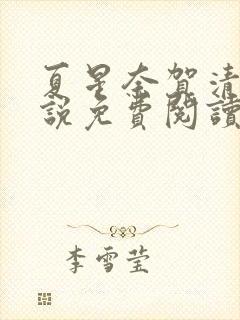 夏星奈賀清
說免費閱讀
李雪莹